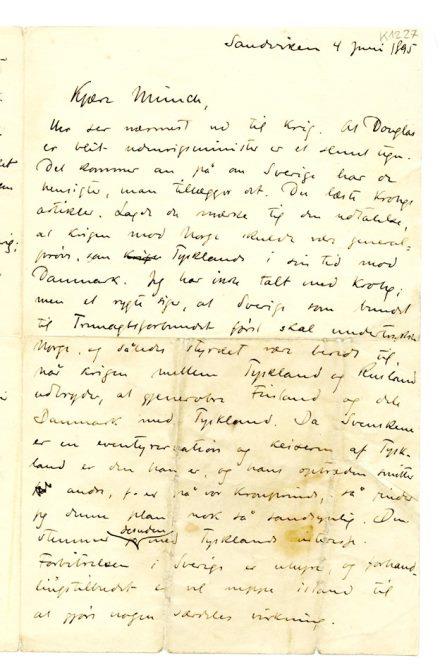 K 1227
Sandviken 4 Juni 1895
Kjære Munch,
Her ser nærmest ud til krig. At Douglas
er blit udenrigsminister er et slemt tegn.
Det kommer an på om Sverige har de
hensigter, man tillægger det. Du læste Krohgs
artikler. Lagde du mærke til den udtalelse,
at krigen mod Norge skulde være general-
prøve, som Tysklands i sin tid mod
Danmark. Jeg har ikke talt med Krohg;
men et rygte siger, at Sverige som bundet
til Trippelforbundet først skal undertrykke
Norge, og således styrket være beredt til,
når krigen mellem Tyskland og Rusland
udbryder, at gjenerobre Finland og dele
Danmark med Tyskland. Da Svenskene
er en eventyrernation og keiseren af Tysk-
land er den han er, og hans optræden smitter
andre, f. ex. på vor kronprinds, så finder
jeg denne plan nok så sandsynlig. Den
stemmer desuden med Tysklands interesse.
Forbitrelsen i Sverige er uhyre, og forhand-
lingstilbudet er vel neppe istand til
at gjøre nogen særdeles virkning.